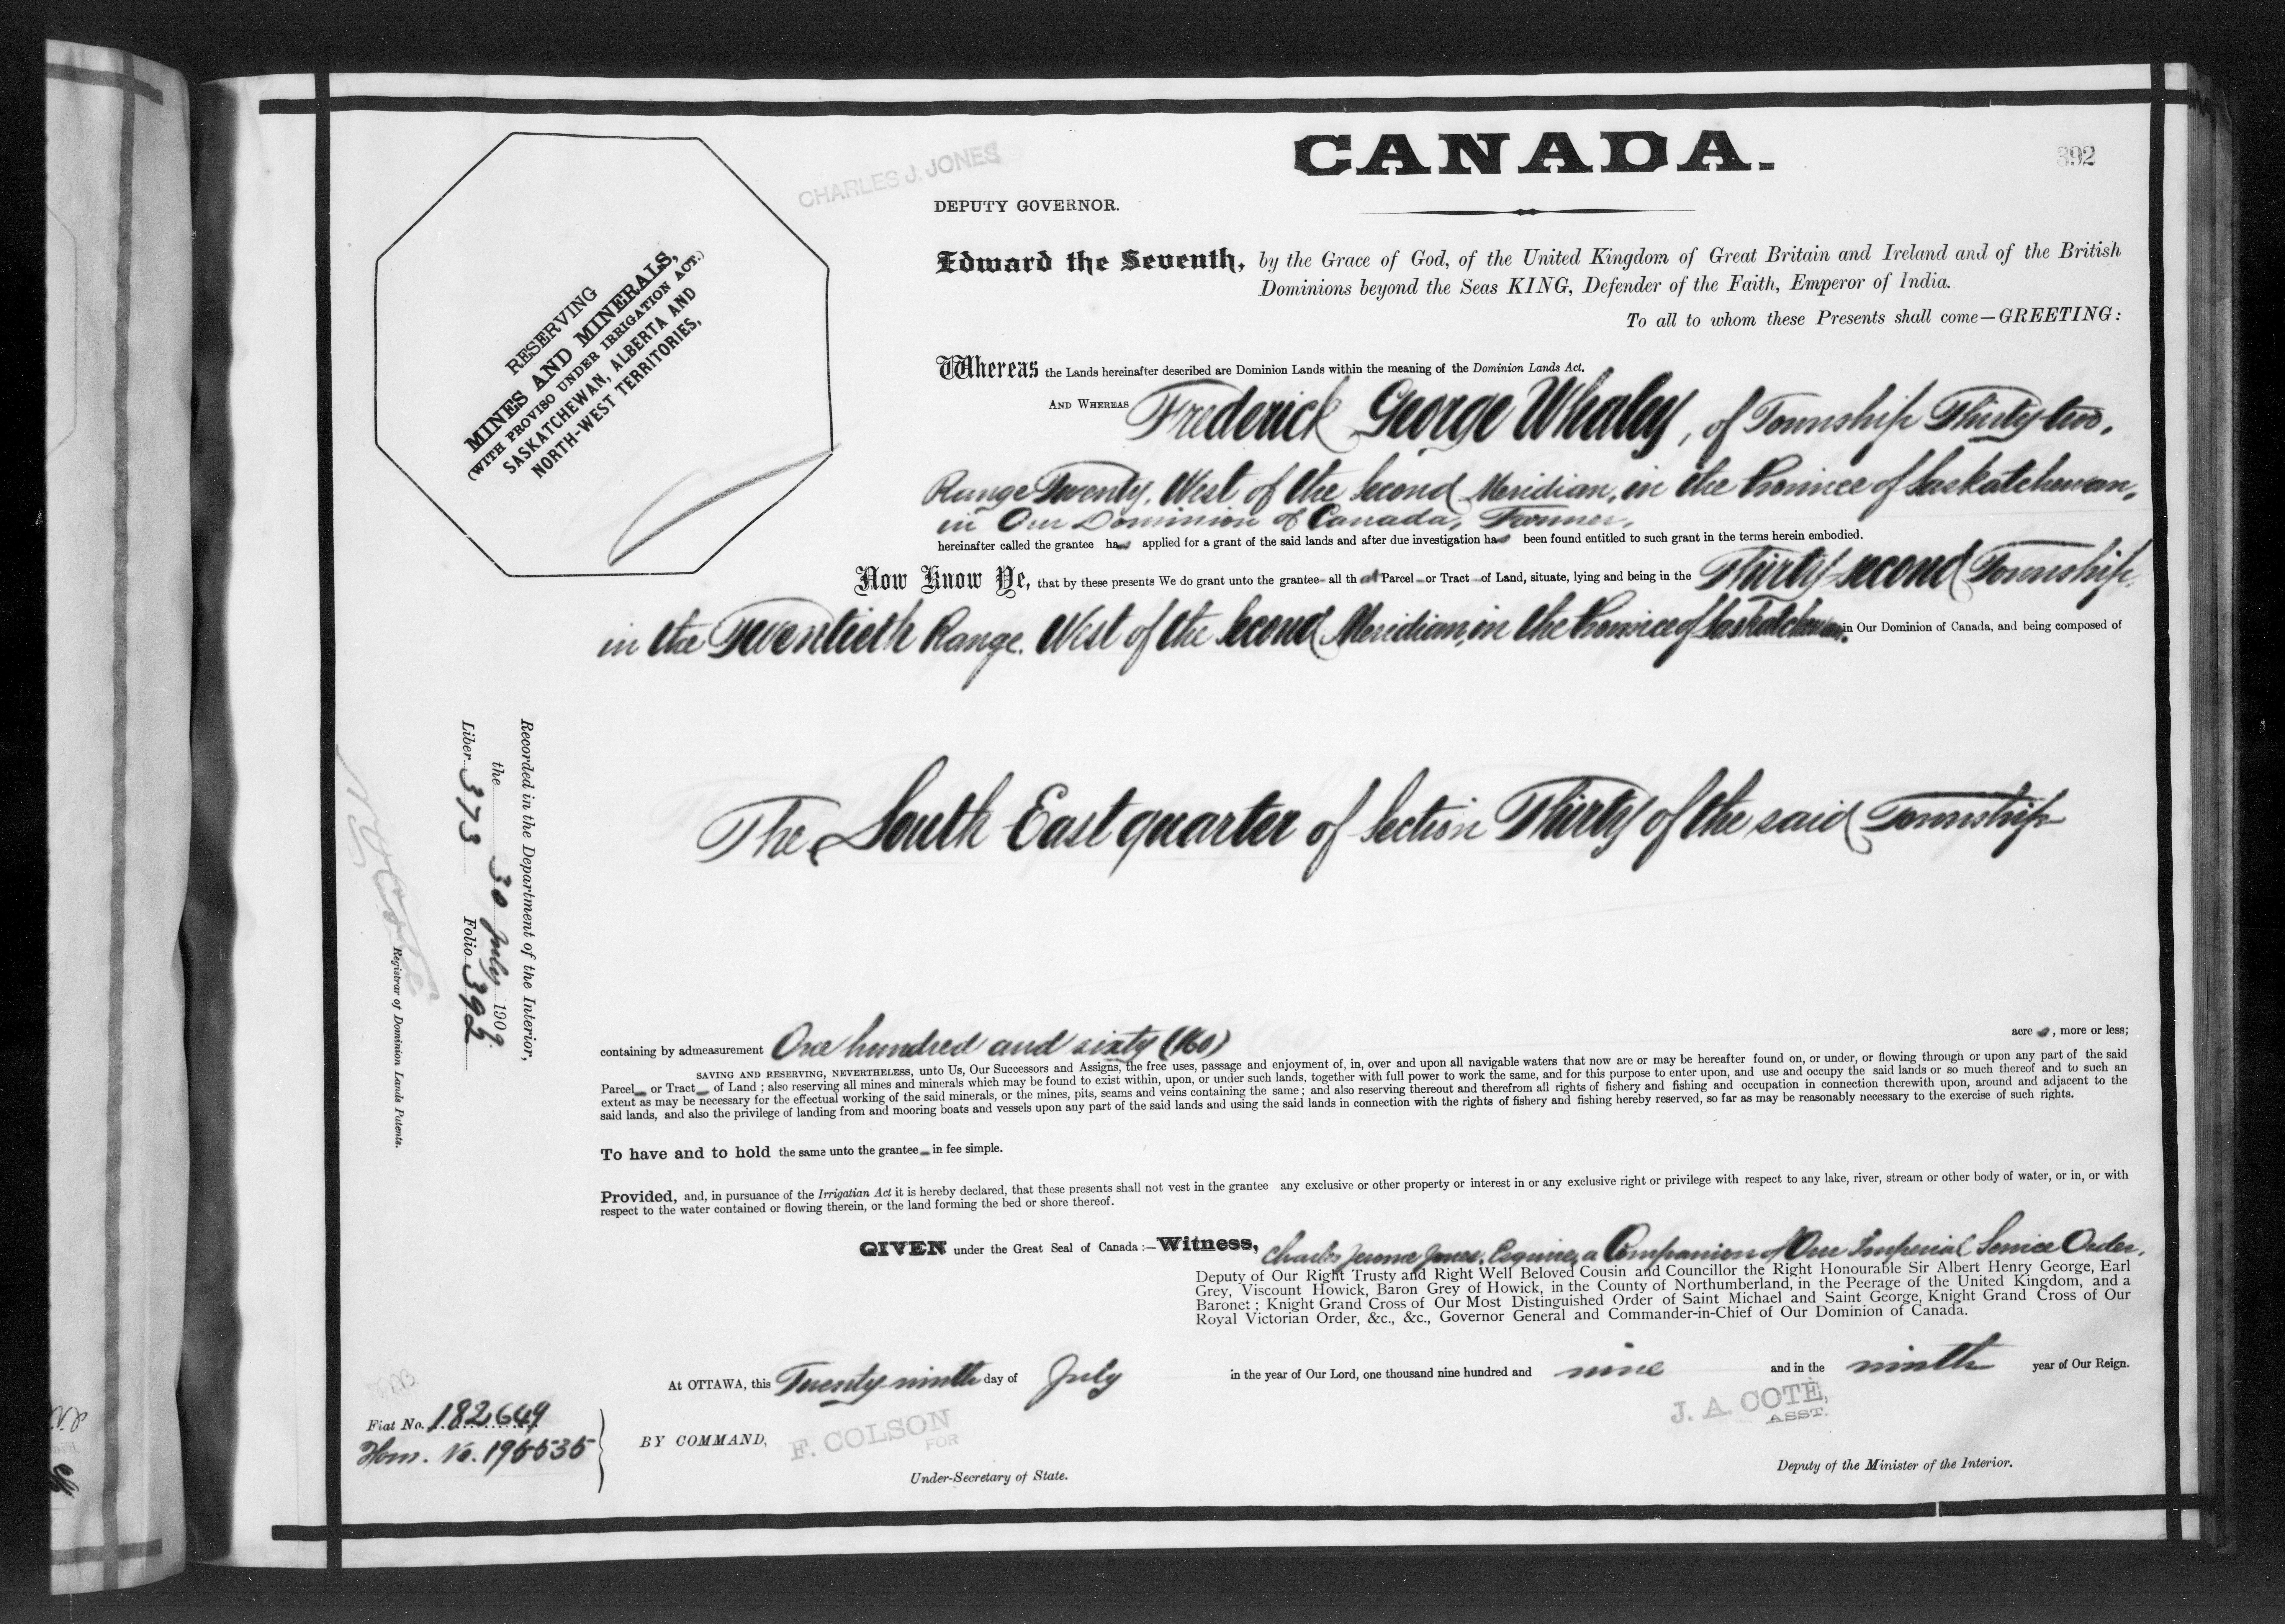 CANADA.
392
CHARLES J. JONES
DEPUTY GOVERNOR.
RESERVING
MINES AND MINERALS,
(WITH PROVISO UNDER IRRIGATION ACT.)
SASKATCHEWAN, ALBERTA AND
NORTH-WEST TERRITORIES,
Edward the Seventh, by the Grace of God, of the United Kingdom of Great Britain and Ireland and of the British
Dominions beyond the Seas KING, Defender of the Faith, Emperor of India.
To all to whom these Presents shall come—GREETING:
Whereas the Lands hereinafter described are Dominion Lands within the meaning of the Dominion Lands Act.
AND WHEREAS Frederick George Whaley, of Township Thirty-two,
Range Twenty, West of the Second Meridian, in the Province of Saskatchewan,
in Our Dominion of Canada, Farmer,
hereinafter called the grantee has applied for a grant of the said lands and after due investigation has been found entitled to such grant in the terms herein embodied.
Now Know Ye, that by these presents We do grant unto the grantee all that Parcel or Tract of Land, situate, lying and being in the Thirty-second Township,
in the Twentieth Range, West of the Second Meridian, in the Province of Saskatchewan, in Our Dominion of Canada, and being composed of
The South East quarter of Section Thirty of the said Township
Recorded in the Department of the Interior,
the 30 July 1909.
Liber 373 Folio 392
Registrar of Dominion Lands Patents.
containing by admeasurement One hundred and sixty (160) acres, more or less;
SAVING AND RESERVING, NEVERTHELESS, unto Us, Our Successors and Assigns, the free uses, passage and enjoyment of, in, over and upon all navigable waters that now are or may be hereafter found on, or under, or flowing through or upon any part of the said
Parcel or Tract of Land; also reserving all mines and minerals which may be found to exist within, upon, or under such lands, together with full power to work the same, and for this purpose to enter upon, and use and occupy the said lands or so much thereof and to such an
extent as may be necessary for the effectual working of the said minerals, or the mines, pits, seams and veins containing the same; and also reserving thereout and therefrom all rights of fishery and fishing and occupation in connection therewith upon, around and adjacent to the
said lands, and also the privilege of landing from and mooring boats and vessels upon any part of the said lands and using the said lands in connection with the rights of fishery and fishing hereby reserved, so far as may be reasonably necessary to the exercise of such rights.
To have and to hold the same unto the grantee in fee simple.
Provided, and, in pursuance of the Irrigatian Act it is hereby declared, that these presents shall not vest in the grantee any exclusive or other property or interest in or any exclusive right or privilege with respect to any lake, river, stream or other body of water, or in, or with
respect to the water contained or flowing therein, or the land forming the bed or shore thereof.
GIVEN under the Great Seal of Canada:—Witness, Charles Jerome Jones, Esquire, a Companion of Our Imperial Service Order,
Deputy of Our Right Trusty and Right Well Beloved Cousin and Councillor the Right Honourable Sir Albert Henry George, Earl
Grey, Viscount Howick, Baron Grey of Howick, in the County of Northumberland, in the Peerage of the United Kingdom, and a
Baronet; Knight Grand Cross of Our Most Distinguished Order of Saint Michael and Saint George, Knight Grand Cross of Our
Royal Victorian Order, &c., &c., Governor General and Commander-in-Chief of Our Dominion of Canada.
At OTTAWA, this Twenty-ninth day of July in the year of Our Lord, one thousand nine hundred and nine and in the ninth year of Our Reign.
J. A. COTÉ,
ASST.
Fiat No. 182649
Hom. No. 195535
BY COMMAND,
F. COLSON
FOR
Under-Secretary of State.
Deputy of the Minister of the Interior.